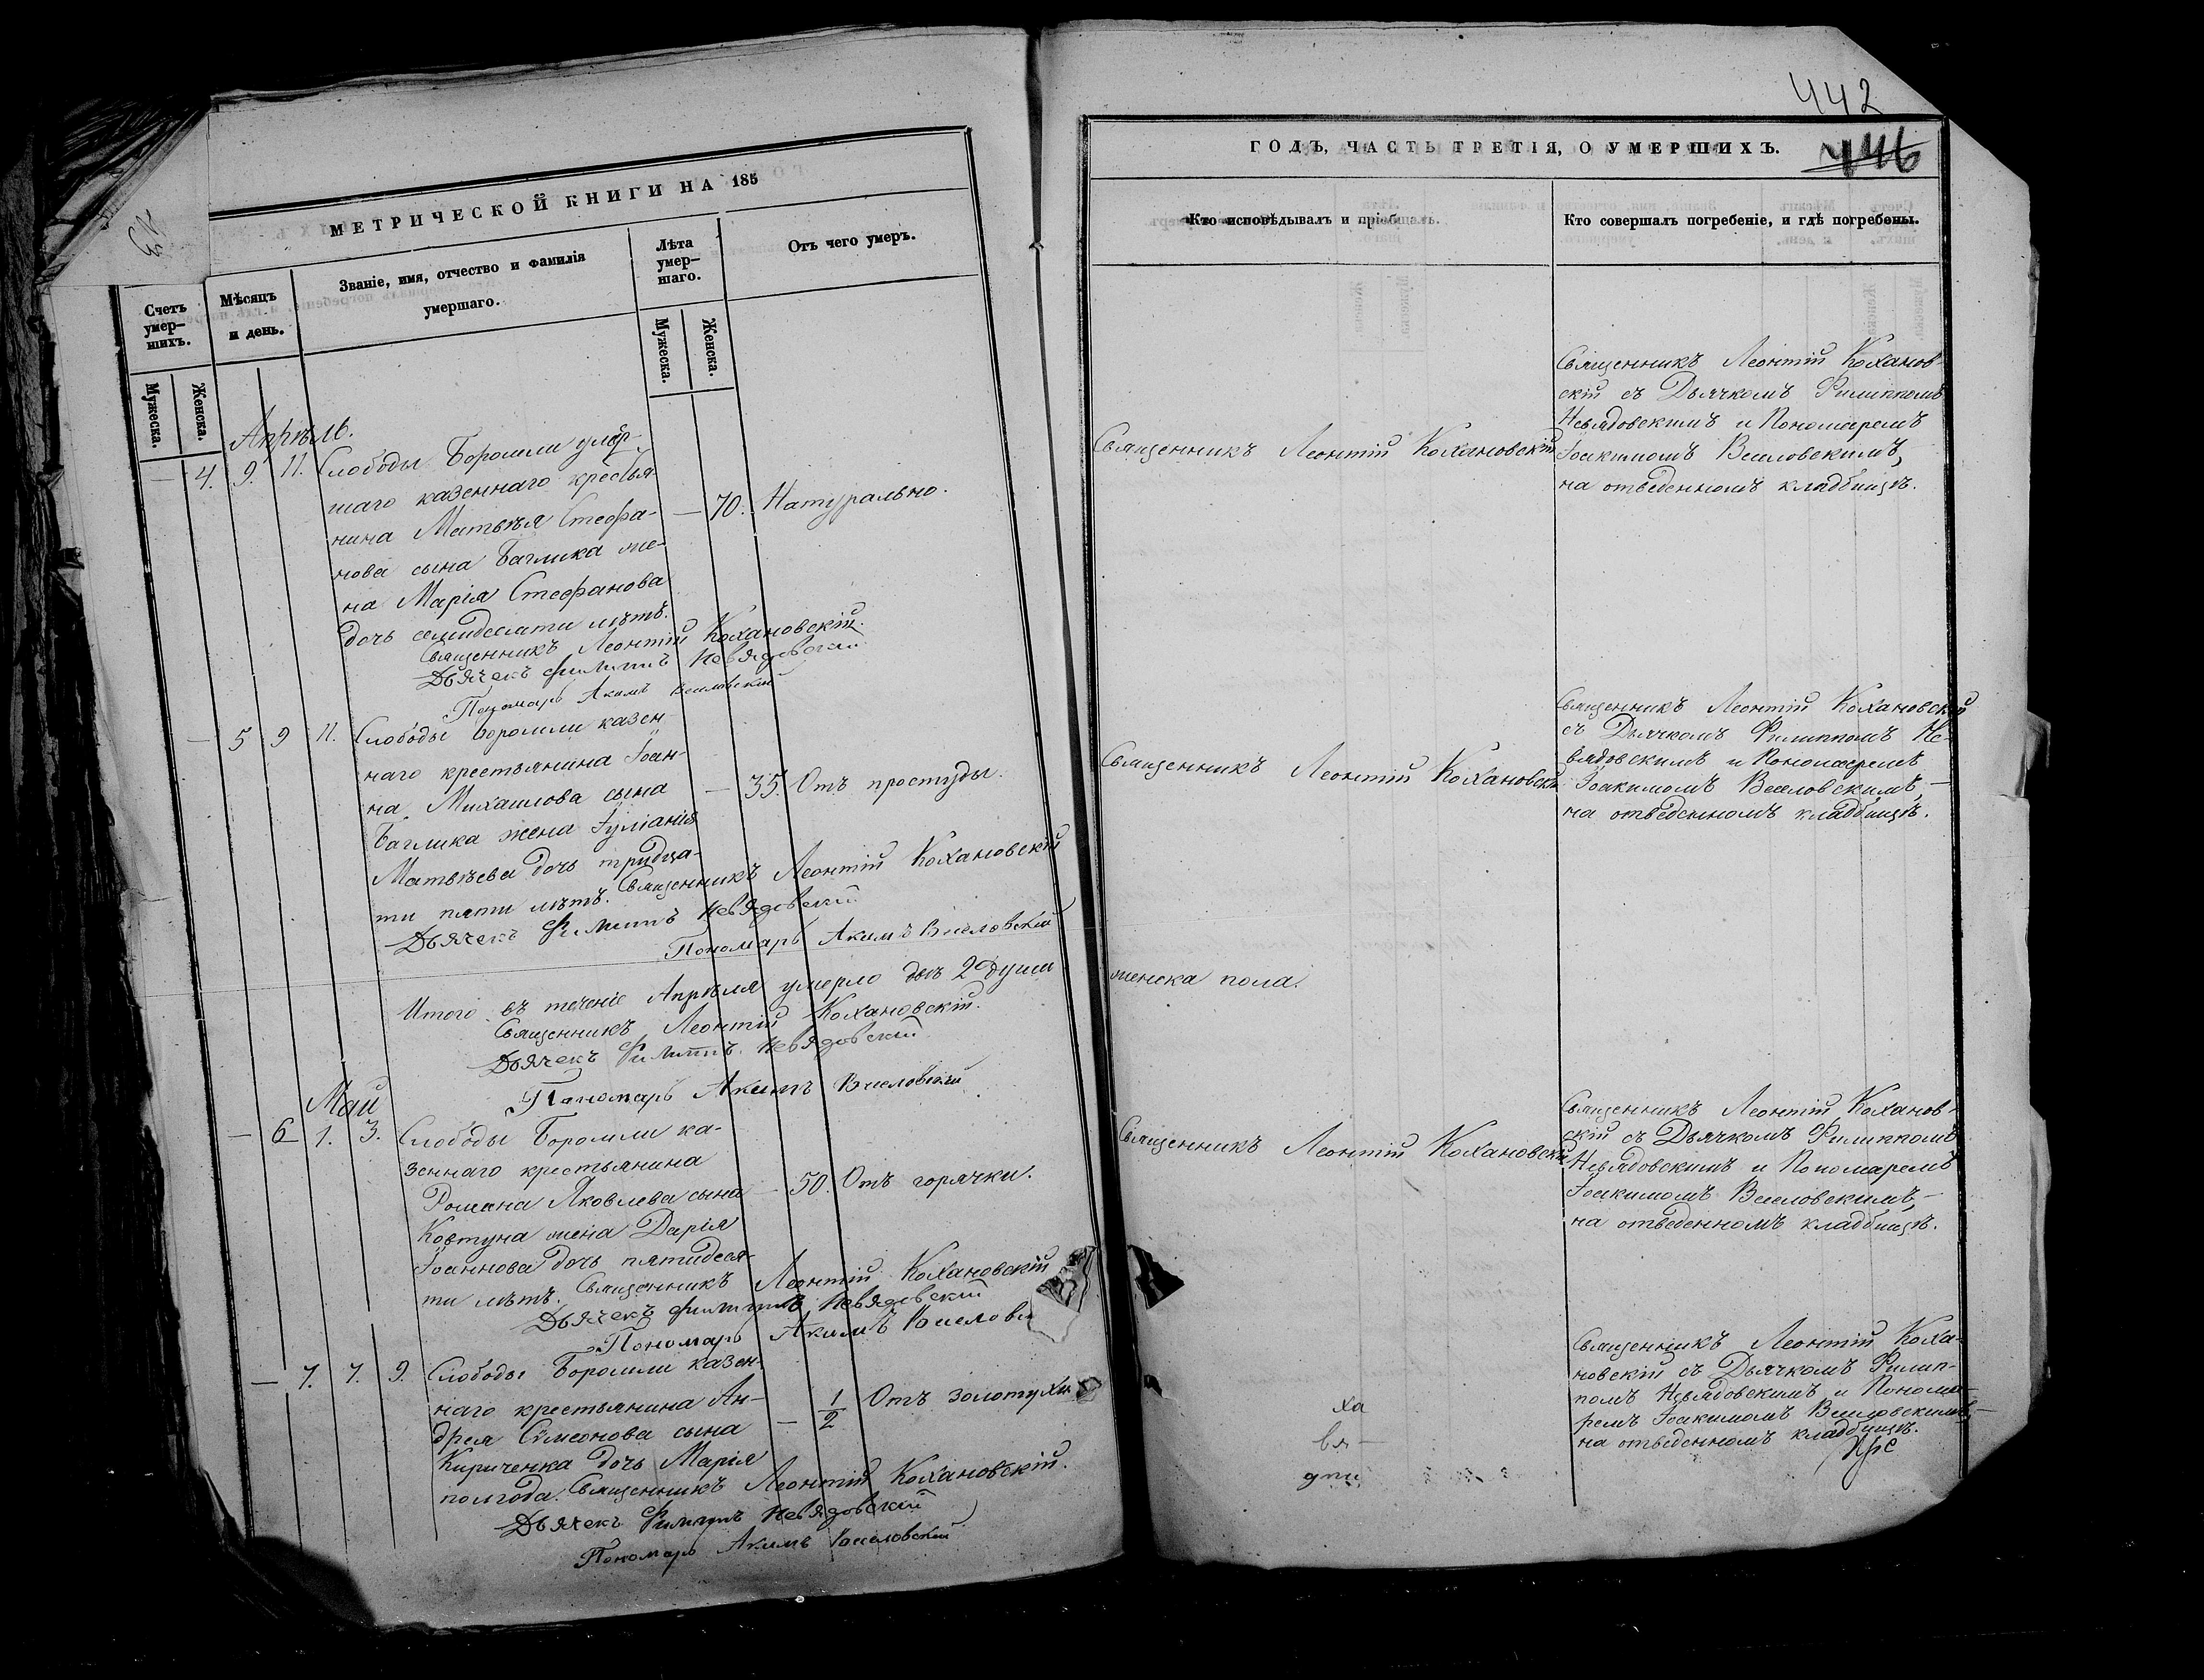 442
446
МЕТРИЧЕСКОЙ КНИГИ НА 185
Счетъ умер–шихъ.
Мужеска.
Женска.
Мѣсяцъ и день.
Званіе, имя, отчество и фамилія
умершаго.
Лѣта умер–шаго.
Мужеска.
Женска.
Отъ чего умеръ.
Апрѣль.
— 4. 9. 11. Слободы Боромли умер-
шаго казеннаго крестья-
нина Матвѣя Стефа-
нова сына Баглика же-
на Марія Стефанова
дочь семидесяти лѣтъ.
— 70. Натурально.
Священникъ Леонтій Кохановскій.
Дьячекъ Филиппъ Невядовскій
Пономарь Акимъ Веселовскій
— 5 9 11. Слободы Боромли казен
наго крестьянина Іоан-
на Михаилова сына
Баглика жена Іуліанія
Матвѣева дочь тридца-
ти пяти лѣтъ. Священникъ Леонтій Кохановскій
— 35. Отъ простуды.
Дьячекъ Филиппъ Невядовскій
Пономарь Акимъ Веселовскій
Итого въ теченіе Апрѣля умерло двѣ 2 души
Священникъ Леонтій Кохановскій.
Дьячекъ Филиппъ Невядовскій
Пономарь Акимъ Веселовскій
Май
— 6 1. 3. Слободы Боромли ка-
зеннаго крестьянина
Романа Яковлева сына
Ковтуна жена Дарія
Іоаннова дочь пятидеся-
ти лѣтъ. Священникъ Леонтій Кохановскій
— 50. Отъ горячки.
Дьячекъ Филиппъ Невядовскій
Пономарь Акимъ Веселовс
— 7. 7. 9. Слободы Боромли казен-
наго крестьянина Ан-
дрея Сѵмеонова сына
Кириченка дочь Марія
полгода. Священникъ Леонтій Кохановскій.
— 1/2 Отъ золотухи
Дьячекъ Филиппъ Невядовскій
Пономарь Акимъ Веселовскій
ГОДЪ, ЧАСТЬ ТРЕТІЯ, О УМЕРШИХЪ.
Кто исповѣдывалъ и пріобщалъ.
Кто совершалъ погребеніе, и гдѣ погребены.
Священникъ Леонтій Кохановскій
Священникъ Леонтій Коханов-
скій съ Дьячкомъ Филиппомъ
Невядовскимъ и Пономаремъ
Іоакимомъ Веселовскимъ,
на отведенномъ кладбищѣ.
Священникъ Леонтій Кохановскій
Священникъ Леонтій Кохановскій
съ Дьячкомъ Филиппомъ Не-
вядовскимъ и Пономаремъ
Іоакимомъ Веселовскимъ, —
на отведенномъ кладбищѣ.
женска пола.
Священникъ Леонтій Кохановскій
Священникъ Леонтій Коханов-
скій съ Дьячкомъ Филиппомъ
Невядовскимъ и Пономаремъ
Іоакимомъ Веселовскимъ, —
на отведенномъ кладбищѣ.
Священникъ Леонтій Коха-
новскій съ Дьячкомъ Филип-
помъ Невядовскимъ и Понома-
ремъ Іоакимомъ Веселовскимъ, —
на отведенномъ кладбищѣ.
ха
вя —